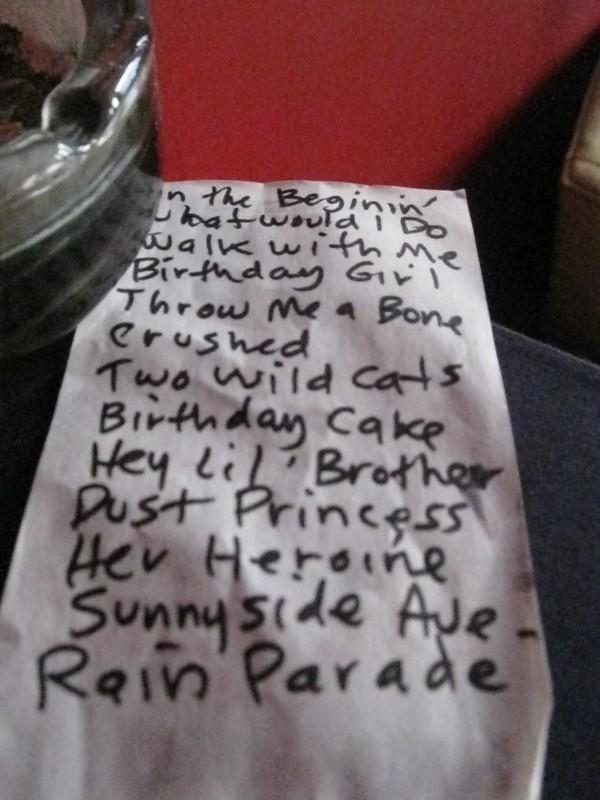 In the Beginin'
What would I Do
Walk with Me
Birthday Girl
Throw Me a Bone
Crushed
Two Wild Cats
Birthday Cake
Hey Lil' Brother
Dust Princess
Her Heroine
Sunnyside Ave.
Rain Parade